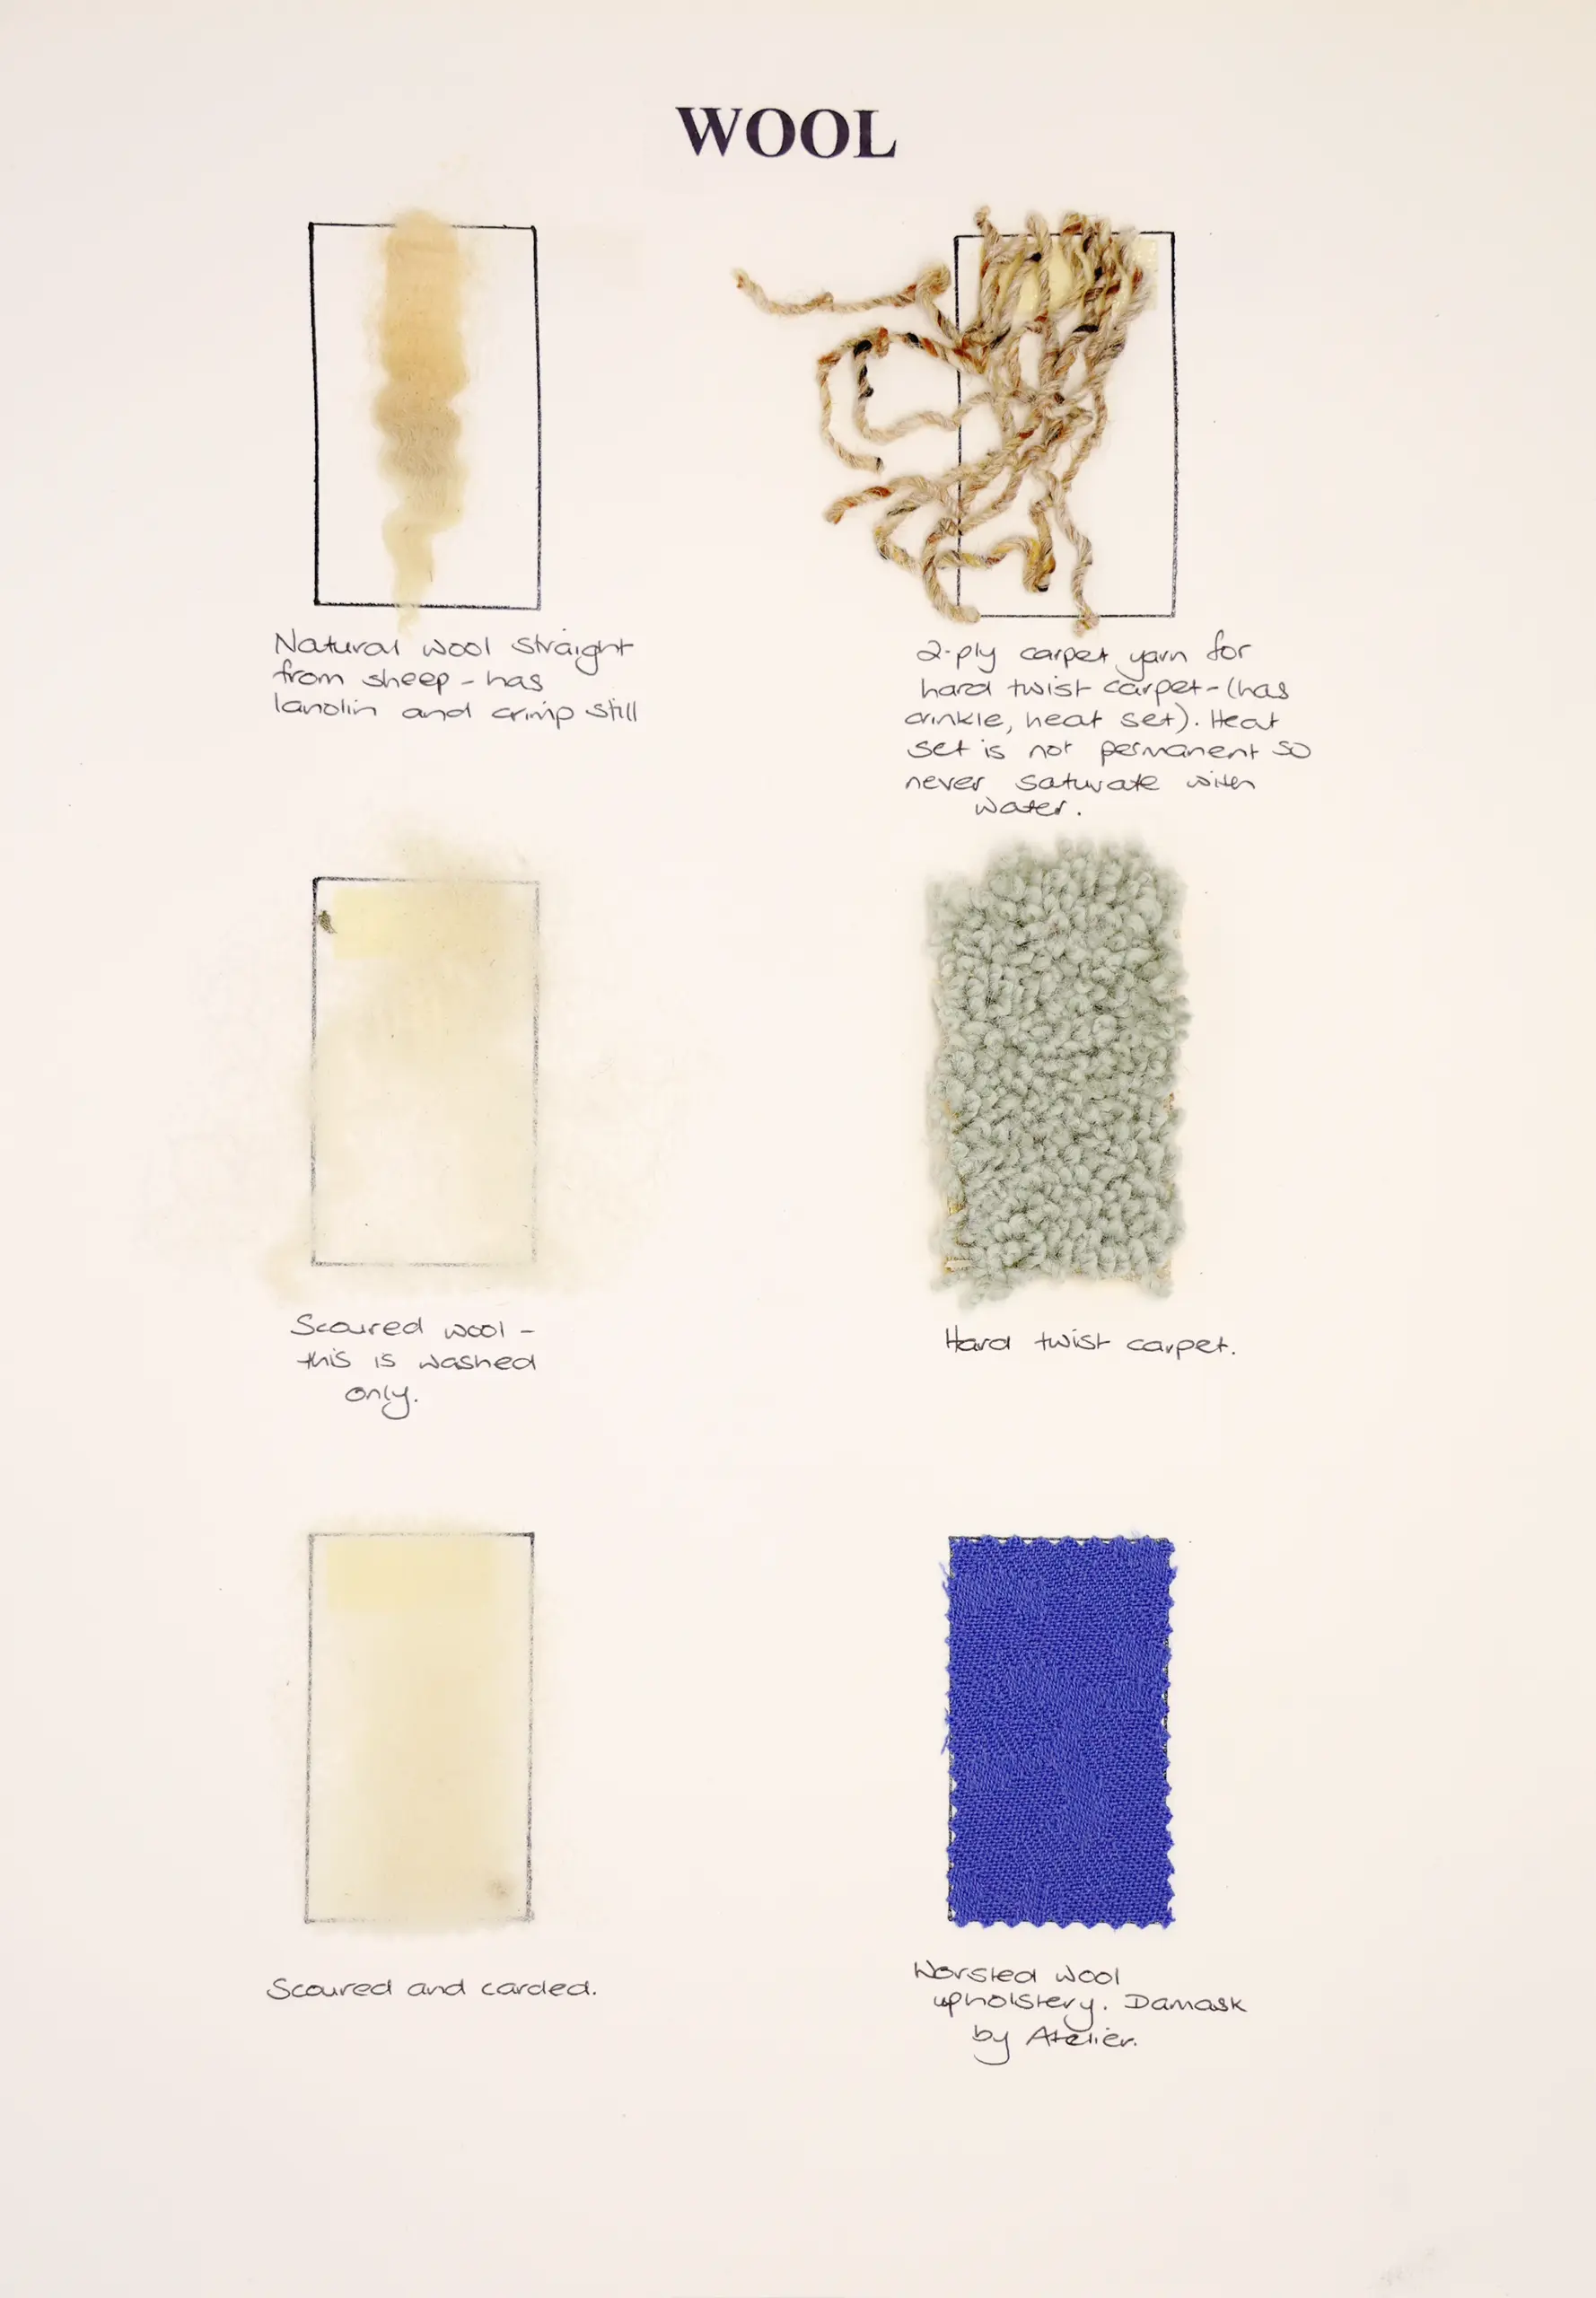 WOOL
Natural wool straight
from sheep - has
lanolin and crimp still
2-ply carpet yarn for
hard twist carpet - (has
crinkle, heat set). Heat
set is not permanent so
never saturate with
water.
Scoured wool -
this is washed
only.
Hard twist carpet.
Scoured and carded.
Worsted wool
upholstery. Damask
by Atelier.